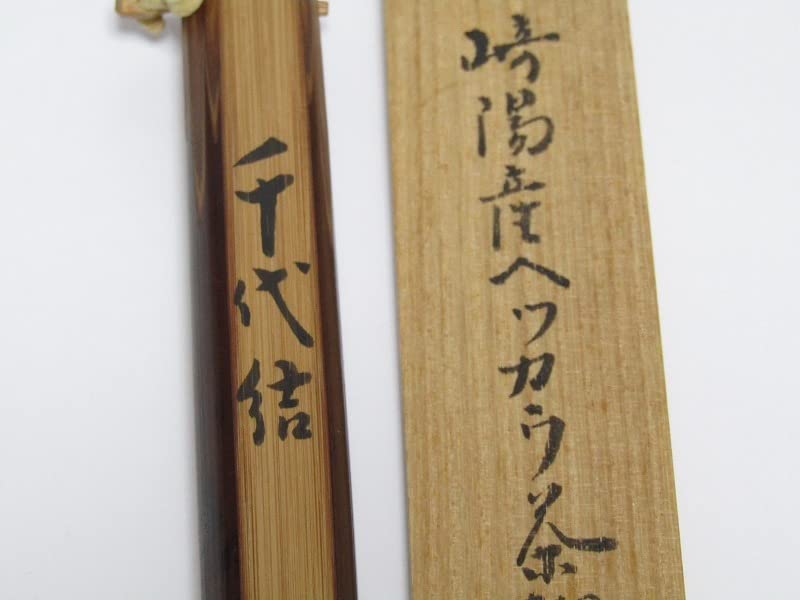 崎陽産ヘツカウ茶
千代結